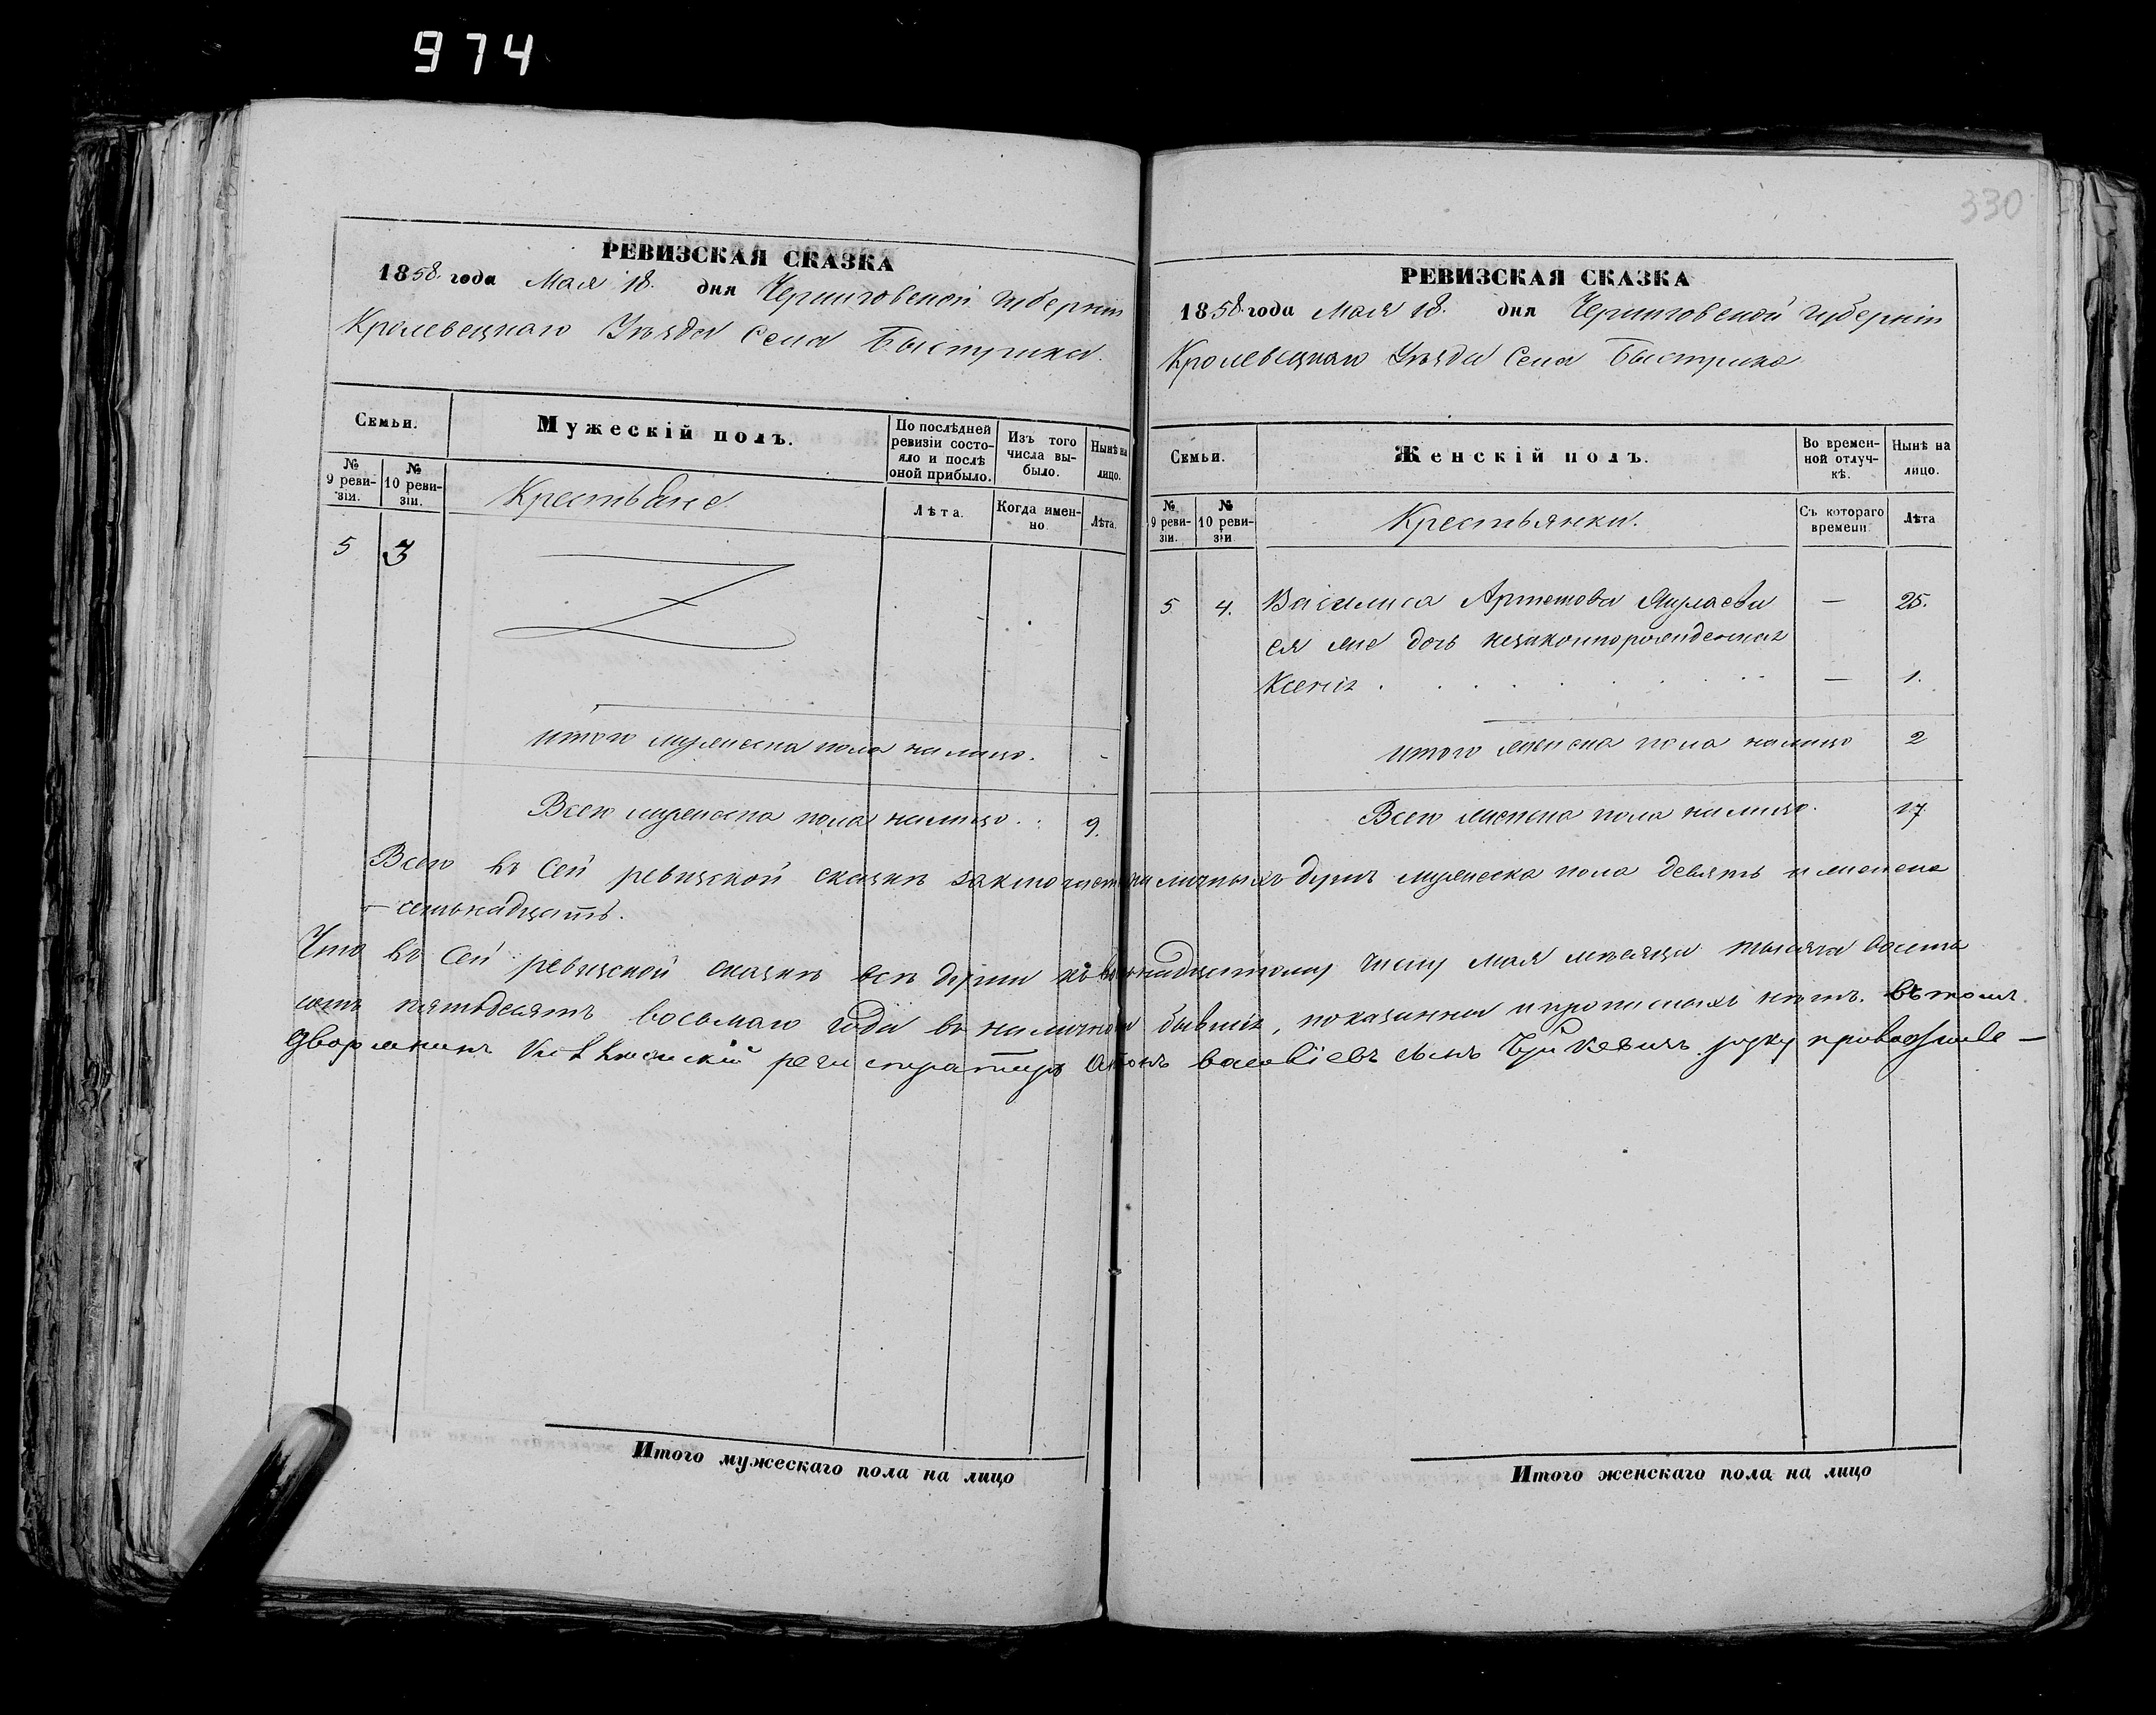 974
330
РЕВИЗСКАЯ СКАЗКА
1858 года Мая 18. дня Черниговской губерніи
Кролевецкаго Уѣзда Села Быстрика.
Семьи.
Мужескій полъ.
По послѣдней ревизіи состояло и послѣ оной прибыло.
Изъ того числа выбыло.
Нынѣ на лицо.
№ 9 ревизіи.
№ 10 ревизіи.
Крестьяне
Лѣта.
Когда именно.
Лѣта.
5 3
итого мужеска пола налицо. -
Всего мужеска пола налицо. 9.
РЕВИЗСКАЯ СКАЗКА
1858 года Мая 18. дня Черниговской губерніи
Кролевецкаго Уѣзда Села Быстрика
Семьи.
Женскій полъ.
Во временной отлучкѣ.
Нынѣ на лицо.
№ 9 ревизіи.
№ 10 ревизіи
Крестьянки.
Съ котораго времени.
Лѣта
5 4. Василиса Артемова — 25.
ея же дочь незаконнорожденная
Ксенія — 1.
итого женска пола налицо 2
Всего женска пола налицо. 17
Всего въ сей ревизской сказкѣ заключается личныхъ душъ мужеска пола девять и женска
— семьнадцать.
Что въ сей ревизской сказкѣ всѣ души къ восемнадцатому числу мая мѣсяца тысяча восемь
сотъ пятьдесятъ восьмаго года въ наличной бывшія, показаны и прописныхъ нѣтъ. въ томъ
дворянинъ регистраторъ сынъ руку
Итого мужескаго пола на лицо
Итого женскаго пола на лицо